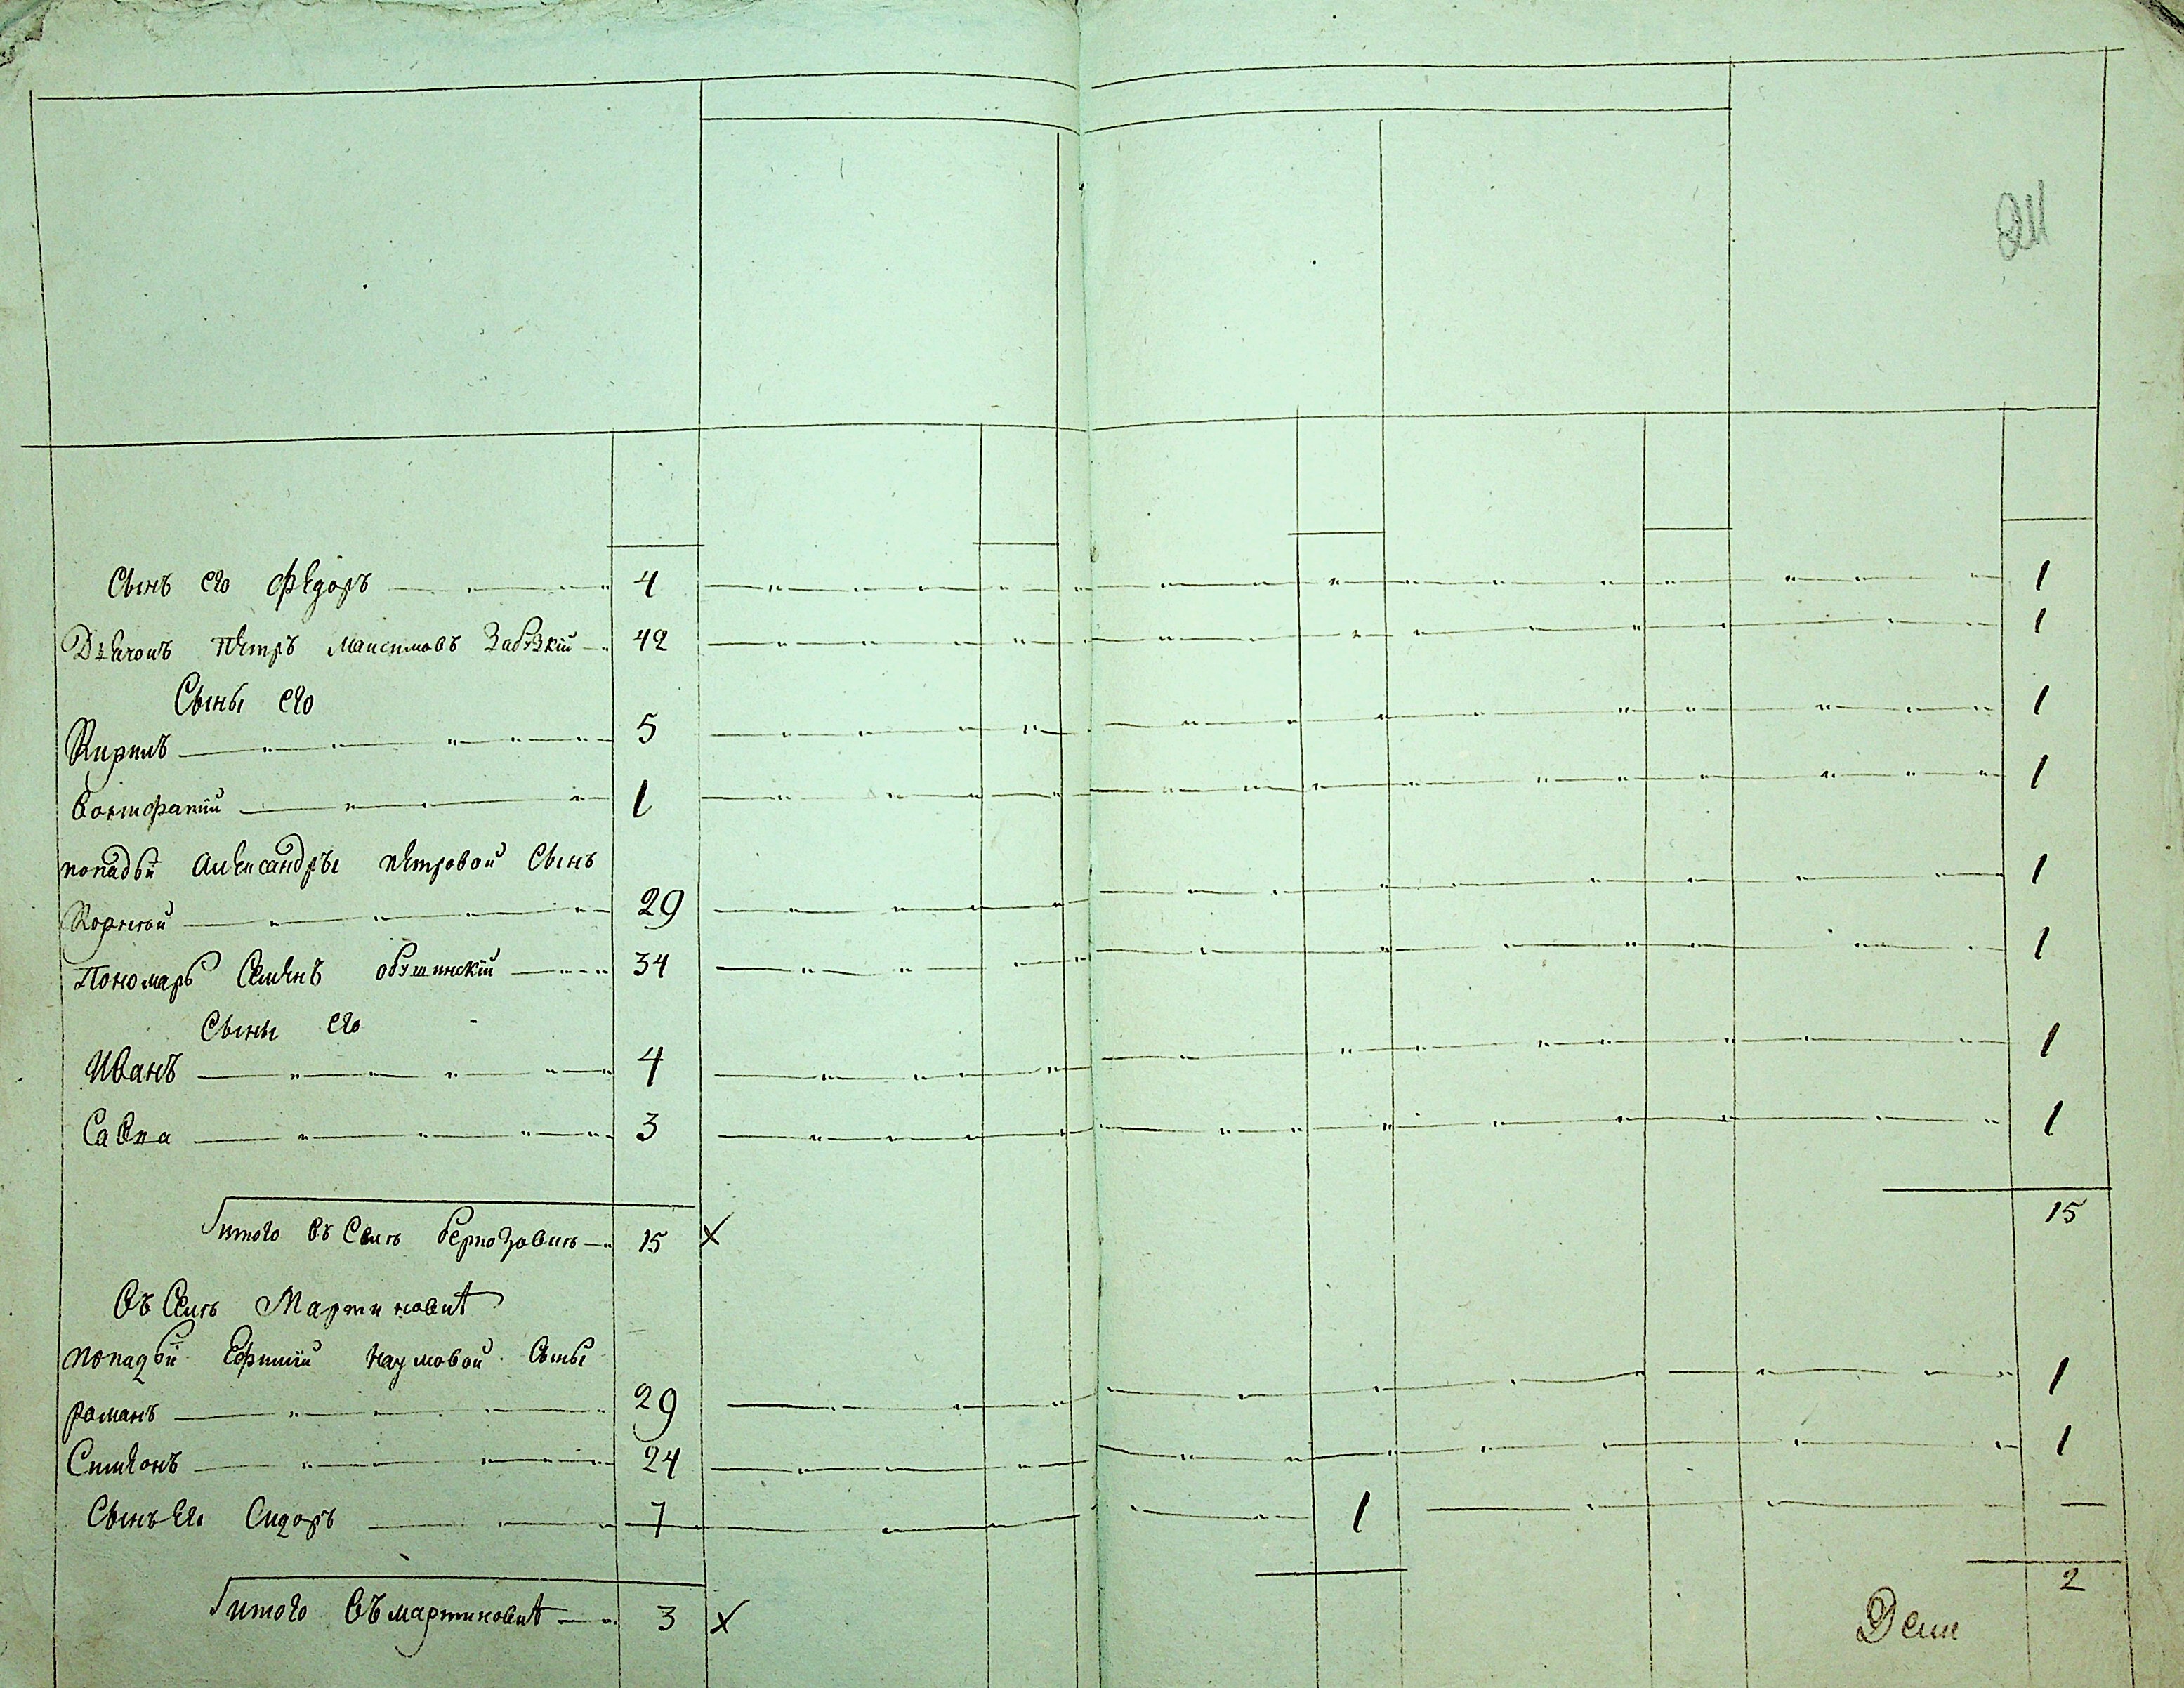 Сынъ его Федоръ 4 1
Дьячокъ Петръ Максимовъ Забузкїй 42 1
Сыны его
Кирилъ 5 1
Вонифатїй 1 1
попадьи Александры Петровой Сынъ
Корнѣй 29 1
Пономарь Семенъ 34 1
Сыны его
Иванъ 4 1
Савка 3 1
итого въ Селѣ 15 х 15
Въ Селѣ Мартиновкѣ
попадьи Ефимїи Наумовой Сыны
романъ 29 1
Симеонъ 24 1
Сынъ Его Сидоръ 7 1 —
2
итого въ мартиновкѣ 3 х